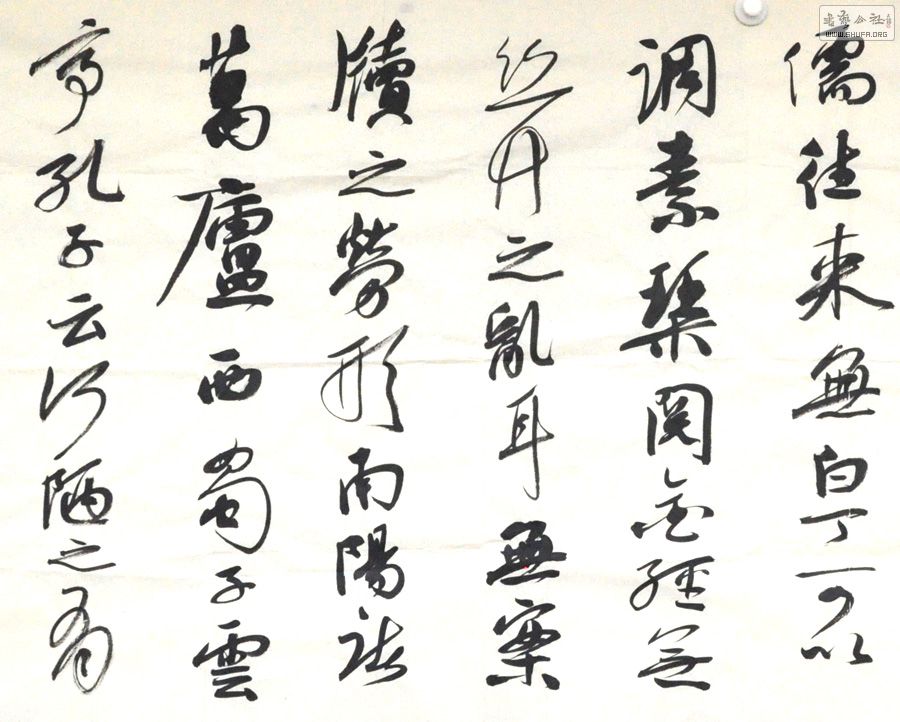 儒往来無白丁可以
調素琴閱金經無
絲竹之亂耳無案
牘之勞形南陽諸
葛廬西蜀子雲
亭孔子云何陋之有
書藝公社
WWW.SHUFA.ORG